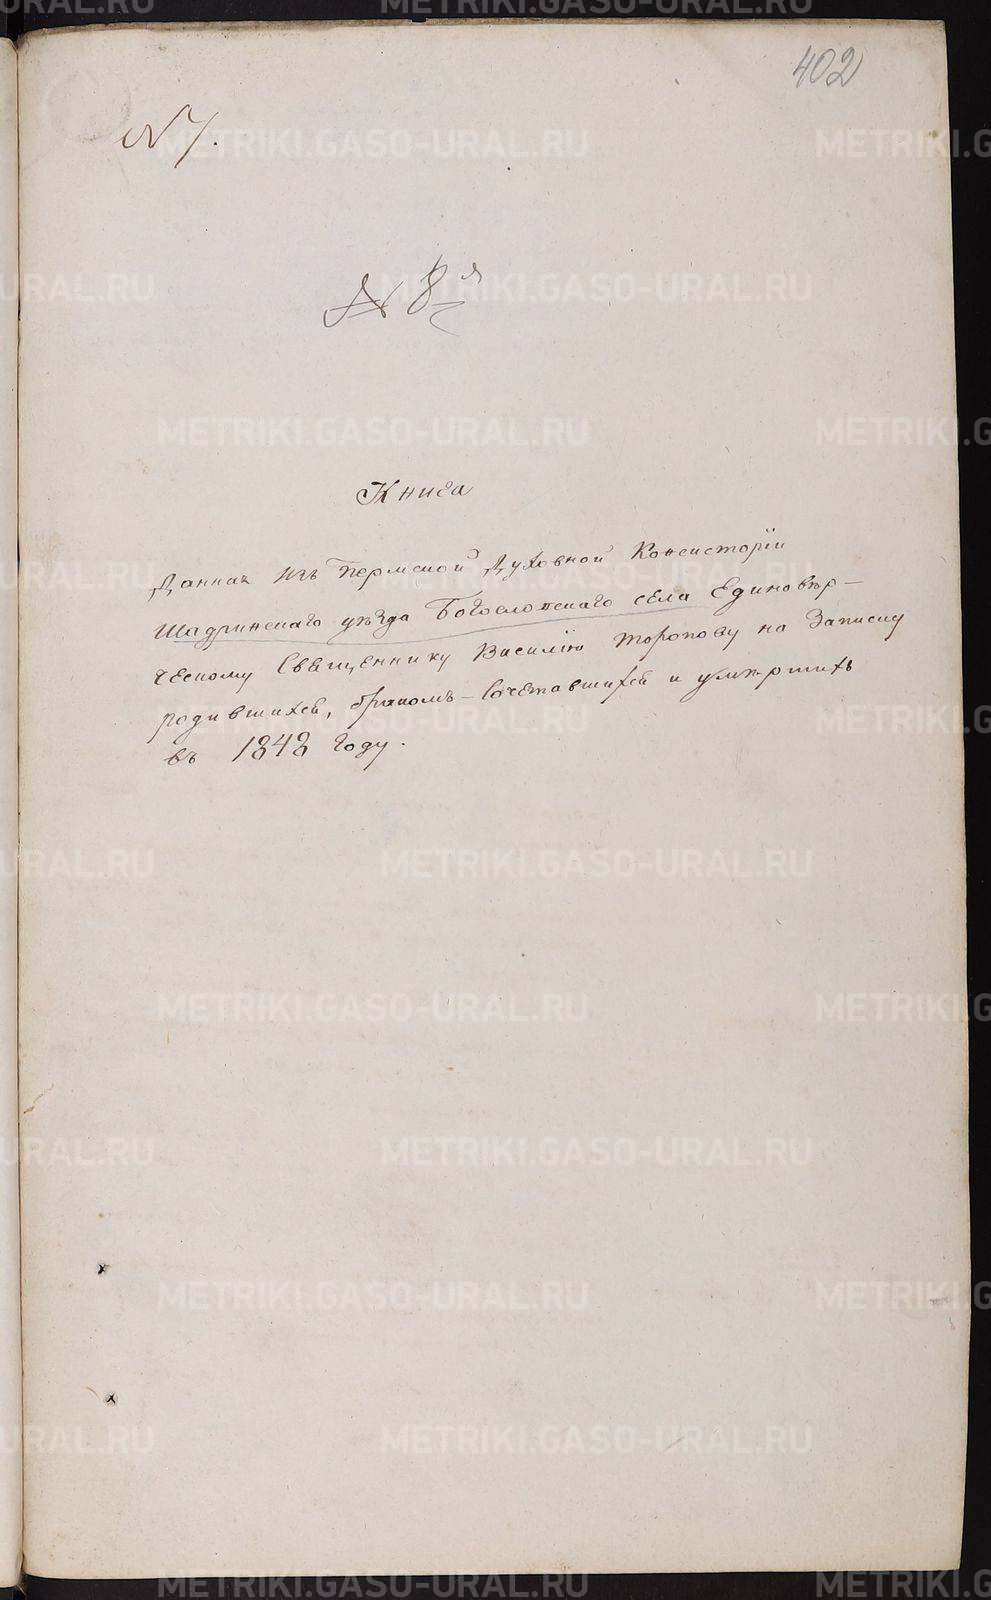 402
№ 7.
№ 8й
Книга
Данная изъ Пермской Духовной Консисторіи
Шадринскаго уѣзда Богословскаго села Единовѣр-
ческому Священнику Василію Торопову на Записку
родившихся, бракомъ-Сочетавшихся и умершихъ
въ 1848 году.
METRIKI.GASO-URAL.RU